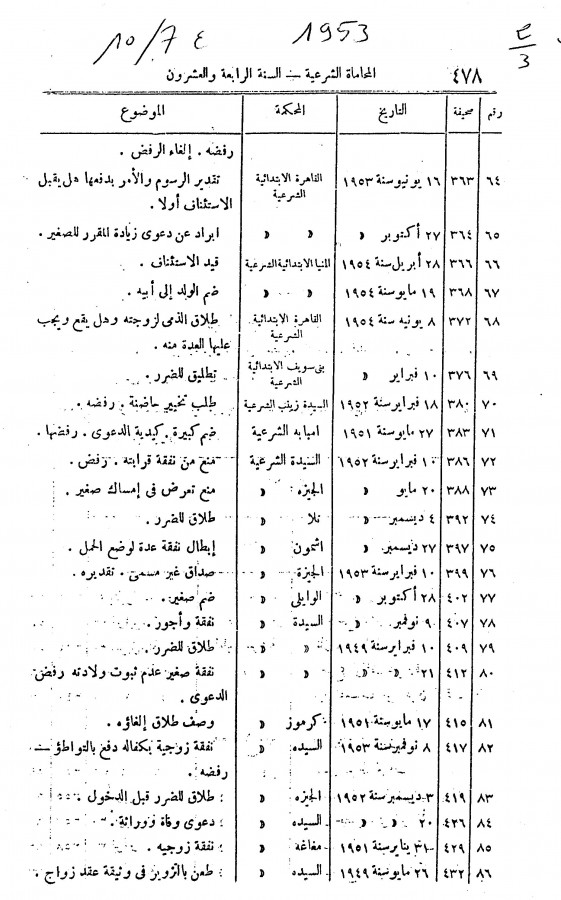 ١٠/٧٤ 1953 ج/3
٤٧٨ المحاماة الشرعية — السنة الرابعة والعشرون
رقم صحيفة التاريخ المحكمة الموضوع
رفضه . إلغاء الرفض .
٦٤ ٣٦٣ ١٦ يونيو سنة ١٩٥٣ القاهرة الابتدائية الشرعية تقدير الرسوم والأمر بدفعها هل يقبل
الاستئناف أولا .
٦٥ ٣٦٤ ٢٧ أكتوبر » » » ايراد عن دعوى زيادة المقرر للصغير .
٦٦ ٣٦٦ ٢٨ أبريل سنة ١٩٥٤ المنيا الابتدائية الشرعية قيد الاستئناف .
٦٧ ٣٦٨ ١٩ مايو سنة ١٩٥٤ » » ضم الولد إلى أبيه .
٦٨ ٣٧٢ ٨ يونيه سنة ١٩٥٤ القاهرة الابتدائية الشرعية طلاق الذى لزوجته وهل يقع ويجب
عليها العدة منه .
٦٩ ٣٧٦ ١٠ فبراير » بنى سويف الابتدائية الشرعية تطليق للضرر .
٧٠ ٣٨٠ ١٨ فبراير سنة ١٩٥٢ السيدة زينب الشرعية طلب تخيير حاضنة . رفضه .
٧١ ٣٨٣ ٢٧ مايو سنة ١٩٥١ امبابه الشرعية ضم كبيرة . كيدية الدعوى . رفضها .
٧٢ ٣٨٦ ١٠ فبراير سنة ١٩٥٢ السيدة الشرعية منع من نفقة قرابته . رفض .
٧٣ ٣٨٨ ٢٠ مايو » الجيزه » منع تعرض فى إمساك صغير .
٧٤ ٣٩٢ ٤ ديسمبر » تلا » طلاق للضرر .
٧٥ ٣٩٧ ٢٧ ديسمبر » اشمون » إبطال نفقة عدة لوضع الحمل .
٧٦ ٣٩٩ ١٠ فبراير سنة ١٩٥٣ الجيزة » صداق غير مسمى . تقديره .
٧٧ ٤٠٢ ٢٨ أكتوبر » الوايلى » ضم صغير .
٧٨ ٤٠٧ ٩ نوفمبر » السيدة » نفقة وأجور .
٧٩ ٤٠٩ ١٠ فبراير سنة ١٩٤٩ » » طلاق للضرر .
٨٠ ٤١٢ ٢١ » » » » نفقة صغير عدم ثبوت ولادته رفض
الدعوى .
٨١ ٤١٥ ١٧ مايو سنة ١٩٥١ كرموز » وصف طلاق إلغاؤه .
٨٢ ٤١٧ ٨ نوفمبر سنة ١٩٥٣ السيده » نفقة زوجية بكفاله دفع بالتواطؤ
رفضه .
٨٣ ٤١٩ ٣ ديسمبر سنة ١٩٥٢ الجيزه » طلاق للضرر قبل الدخول .
٨٤ ٤٢٦ ٢٠ » » السيده » دعوى وفاة ووراثة .
٨٥ ٤٢٩ ٣١ يناير سنة ١٩٥١ مغاغه » نفقة زوجيه .
٨٦ ٤٣٢ ٢٦ مايو سنة ١٩٤٩ السيده » طعن بالتزوير فى وثيقة عقد زواج .